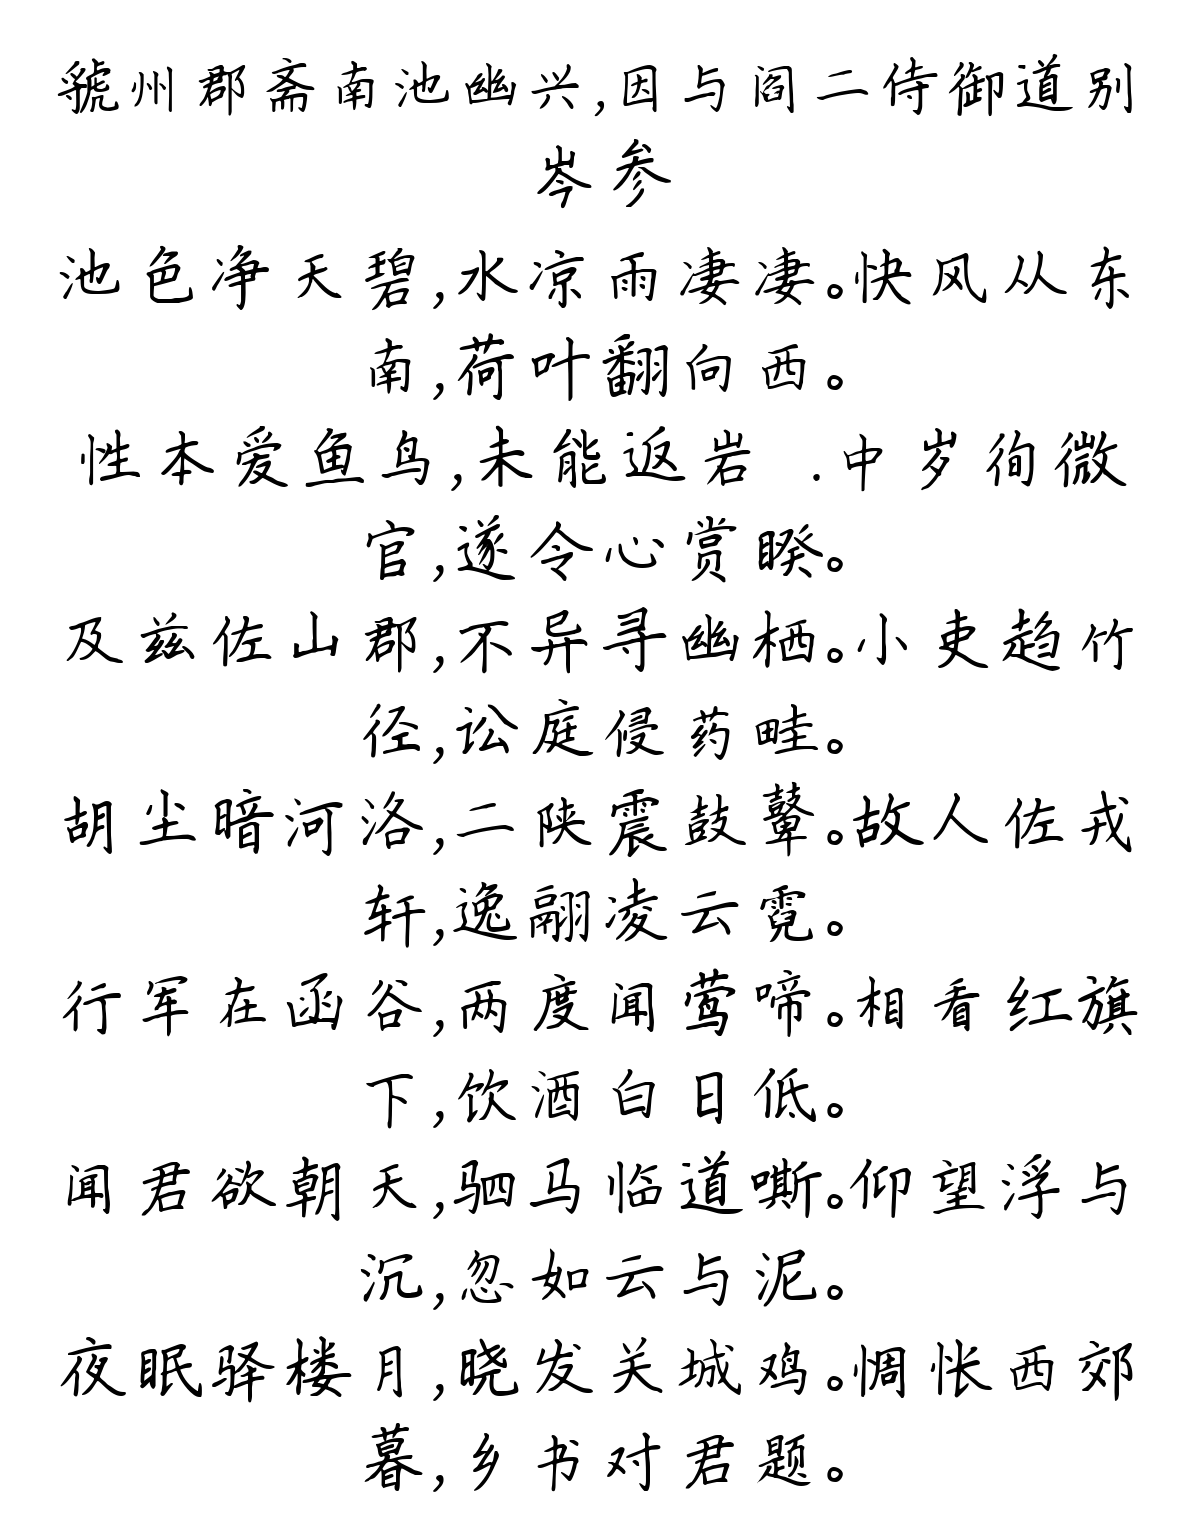 虢州郡斋南池幽兴,因与阎二侍御道别
岑参
池色净天碧,水凉雨凄凄。快风从东
南,荷叶翻向西。
性本爱鱼鸟,未能返岩 .中岁徇微
官,遂令心赏睽。
及兹佐山郡,不异寻幽栖。小吏趋竹
径,讼庭侵药畦。
胡尘暗河洛,二陕震鼓鼙。故人佐戎
轩,逸翮凌云霓。
行军在函谷,两度闻莺啼。相看红旗
下,饮酒白日低。
闻君欲朝天,驷马临道嘶。仰望浮与
沉,忽如云与泥。
夜眠驿楼月,晓发关城鸡。惆怅西郊
暮,乡书对君题。